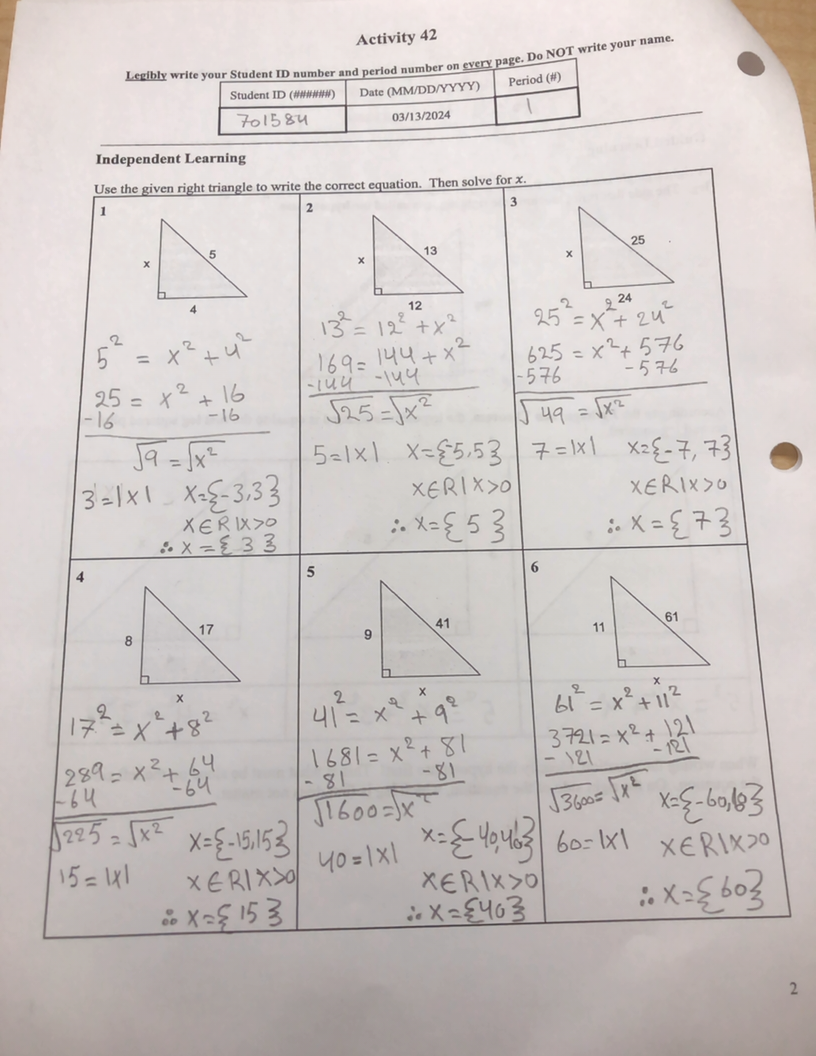 Activity 42
Legibly write your Student ID number and period number on every page. Do NOT write your name.
Student ID (######) Date (MM/DD/YYYY) Period (#)
701584 03/13/2024 1
Independent Learning
Use the given right triangle to write the correct equation. Then solve for x.
1
x 5
4
5² = x² + 4²
25 = x² + 16
-16 -16
√9 = √x²
3 = |x| x={-3,3}
x∈R|x>0
∴ x = {3}
2
x 13
12
13² = 12² + x²
169 = 144 + x²
-144 -144
√25 = √x²
5 = |x| x={-5,5}
x∈R|x>0
∴ x={5}
3
x 25
24
25² = x² + 24²
625 = x² + 576
-576 -576
√49 = √x²
7 = |x| x={-7, 7}
x∈R|x>0
∴ x = {7}
4
8 17
x
17² = x² + 8²
289 = x² + 64
-64 -64
√225 = √x² x={-15,15}
15 = |x| x∈R|x>0
∴ x={15}
5
9 41
x
41² = x² + 9²
1681 = x² + 81
-81 -81
√1600 = √x²
x={-40,40}
40 = |x|
x∈R|x>0
∴ x={40}
6
11 61
x
61² = x² + 11²
3721 = x² + 121
-121 -121
√3600 = √x² x={-60,60}
60 = |x| x∈R|x>0
∴ x={60}
2